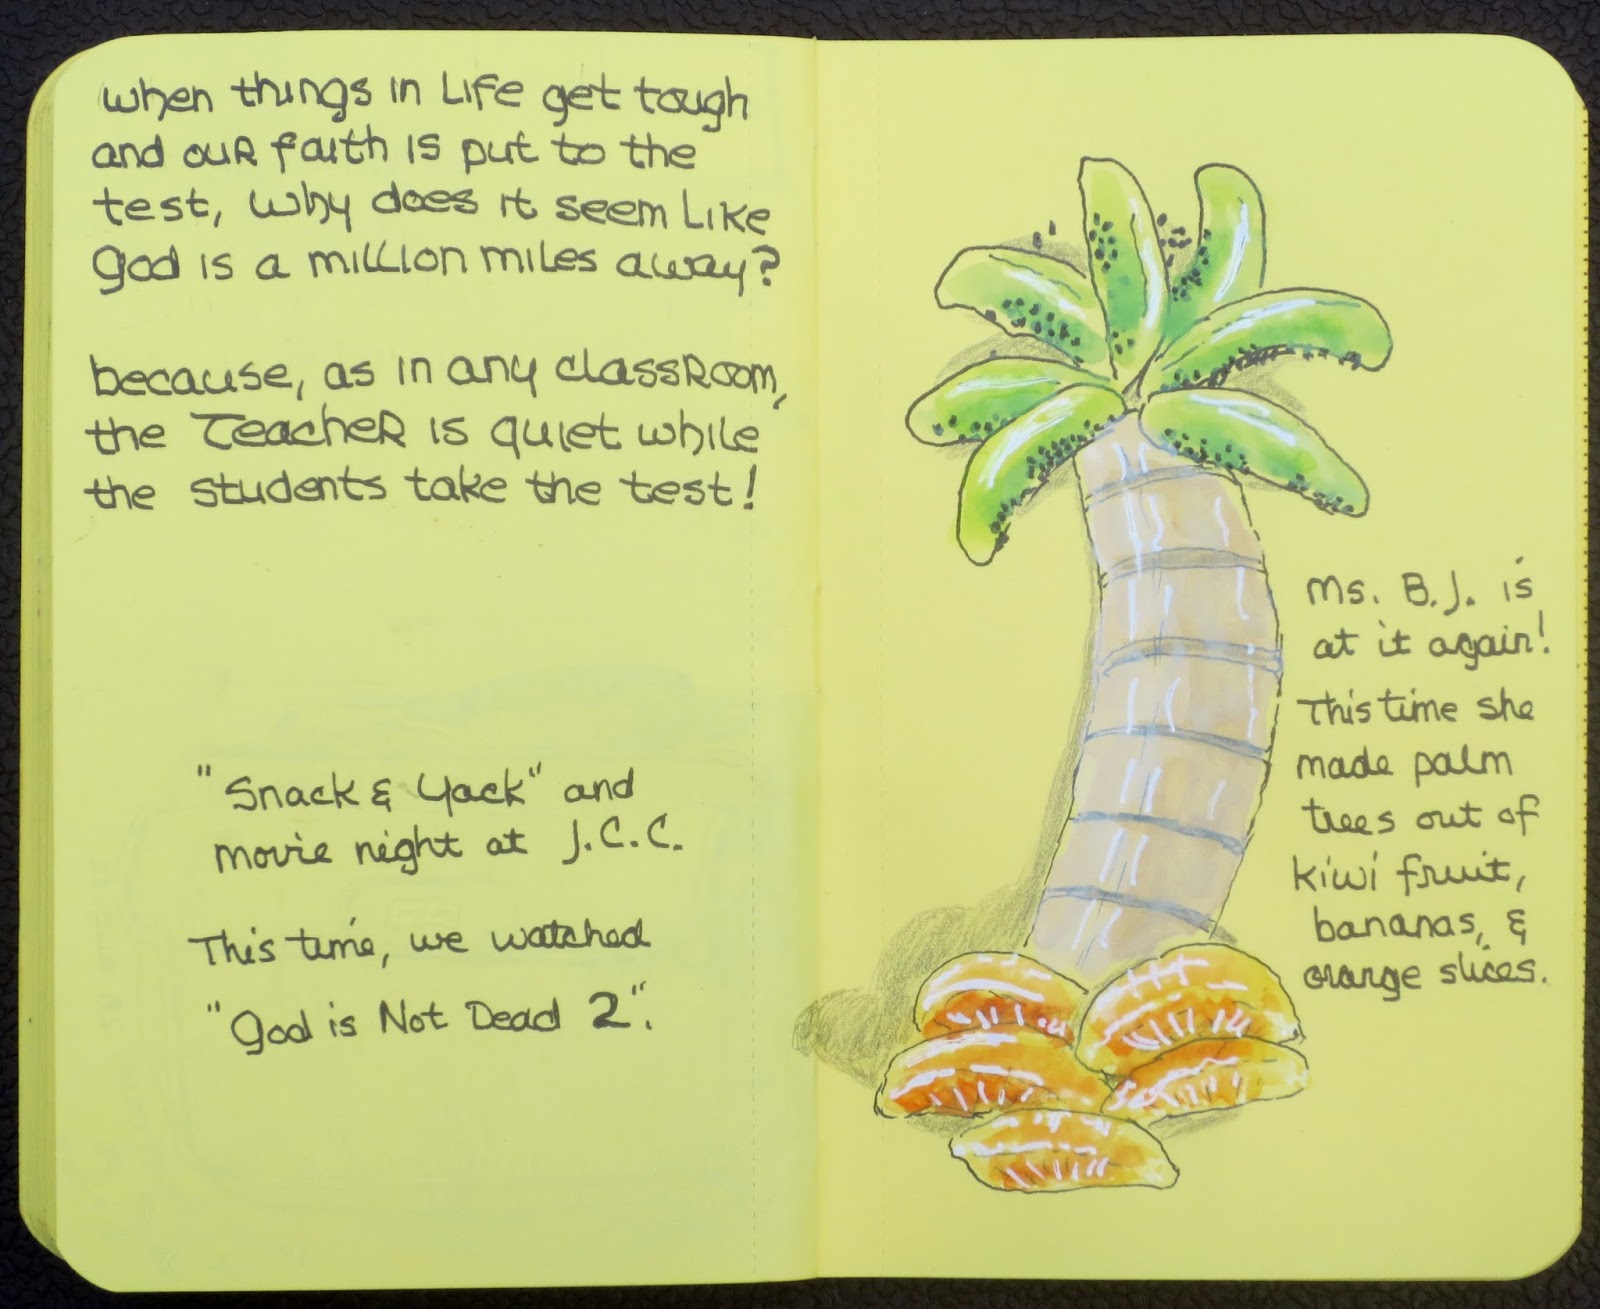 when things in Life get tough
and our faith is put to the
test, why does it seem Like
God is a million miles away?
because, as in any classroom,
the Teacher is quiet while
the students take the test!
"Snack & Yack" and
movie night at J.C.C.
This time, we watched
"God is Not Dead 2".
Ms. B.J. is
at it again!
This time she
made palm
trees out of
kiwi fruit,
bananas, &
orange slices.